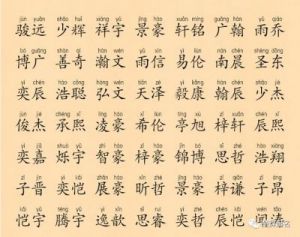 jùn yuǎn shào huī xiáng yǔ jǐng háo xuān míng guǎng hàn yǔ qiáo
骏远 少辉 祥宇 景豪 轩铭 广翰 雨乔
bó guǎng shàn qí hàn wén yǔ xìn yì lún nán chén shèng dōng
博广 善奇 瀚文 雨信 易伦 南晨 圣东
yì chén hào cōng hóng wén tiān zé yì kāng hàn chén shào jié
奕辰 浩聪 弘文 天泽 毅康 翰辰 少杰
jùn jié chéng xī líng háo xī lún tíng xù zǐ xuān chén xī
俊杰 承熙 凌豪 希伦 亭旭 梓轩 辰熙
yì jiā shuò yǔ zhì háo zǐ háo jǐn bó sī zhé hào xiáng
奕嘉 烁宇 智豪 梓豪 锦博 思哲 浩翔
zǐ jìn yì kǎi zhǎn háo xīn zhé jǐng háo zǐ qiān zǐ áng
子晋 奕恺 展豪 昕哲 景豪 梓谦 子昂
kǎi yǔ téng yǔ yì xīn sī ruì yì zhé chén kǎi wén tāo
恺宇 腾宇 逸歆 思睿 奕哲 辰恺 闻涛